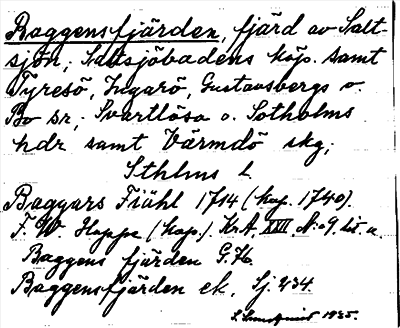 Baggensfjärden, fjärd av Salt-
sjön; Saltsjöbadens köp. samt
Tyresö, Ingarö, Gustavsbergs o.
Bo sr; Svartlösa o. Sotholms
hdr samt Värmdö skg;
Sthlms l.
Baggars Fiähl 1714 (kop. 1740).
F. W. Hoppe (kop.). Kr.A. XXII N:o 9. lit. a.
Baggens fjärden G.K.
Baggensfjärden ek. Sj. 234.
1935.